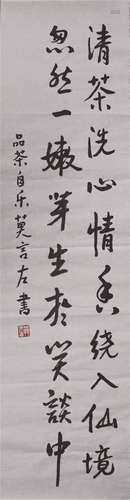 清茶洗心情香绕入仙境
忽然一嫩芽生在笑談中
品茶自乐 莫言左書